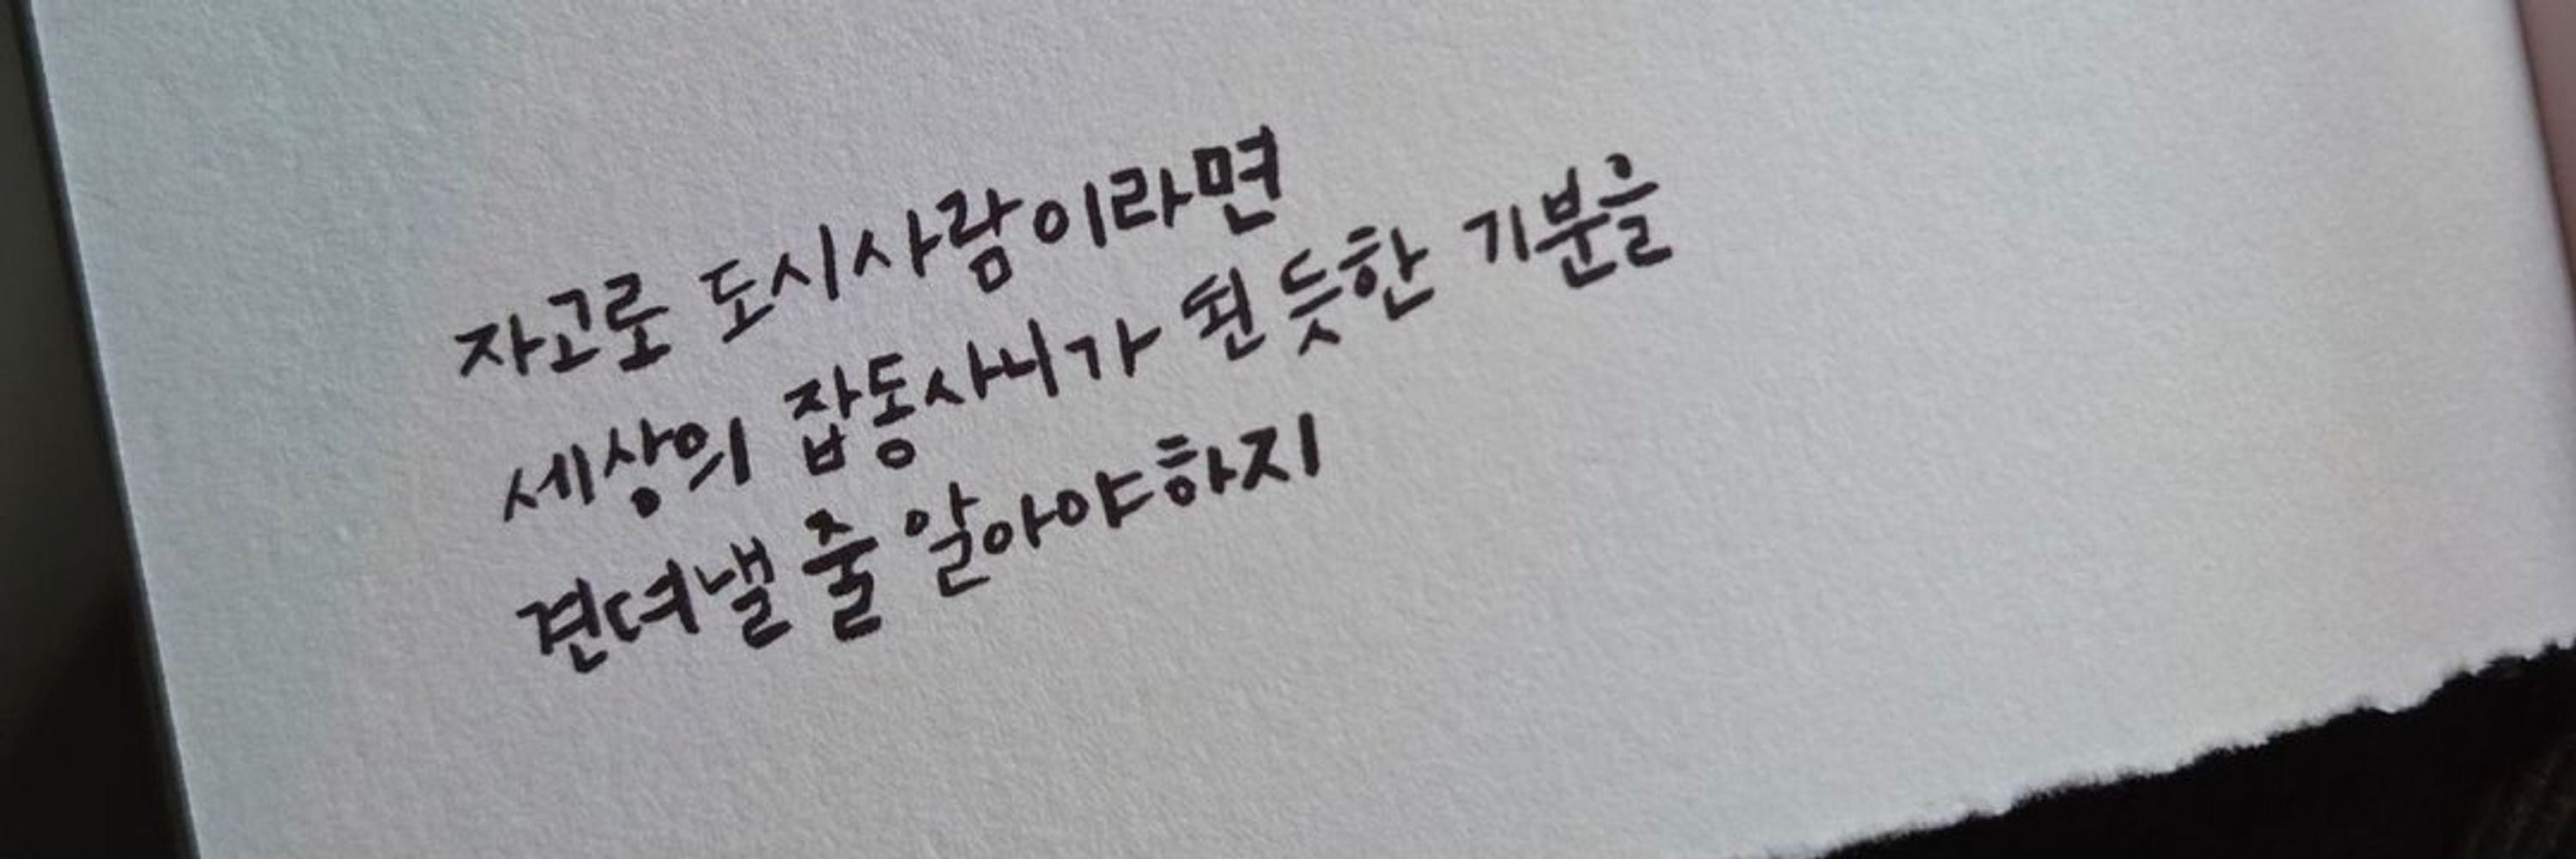 자고로 도시사람이라면
세상의 잡동사니가 된 듯한 기분을
견뎌낼 줄 알아야하지